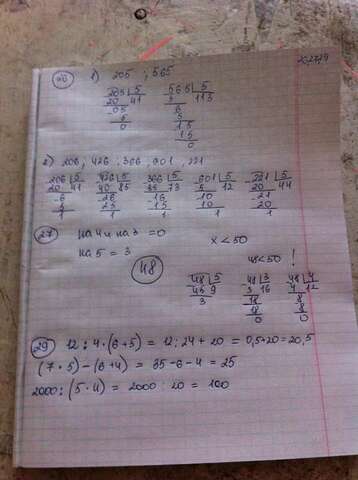 26) 1) 205 ; 565
205 | 5 565 | 5
20 41 5 113
05 6
5 5
0 15
15
0
2) 206 ; 426 ; 366 ; 601 ; 221
206 | 5 426 | 5 366 | 5 601 | 5 221 | 5
20 41 40 85 35 73 5 12 20 44
6 26 16 10 21
5 25 15 10 20
1 1 1 1 1
27) на 4 и на 3 = 0 x < 50
на 5 = 3
48 48 < 50 !
48 | 5 48 | 3 48 | 4
45 9 3 16 4 12
3 18 8
18 8
0 0
29) 12 : 4 · (6+5) = 12 : 24 + 20 = 0,5+20=20,5
(7 · 5) – (6+4) = 35 – 6 – 4 = 25
2000 : (5 · 4) = 2000 : 20 = 100